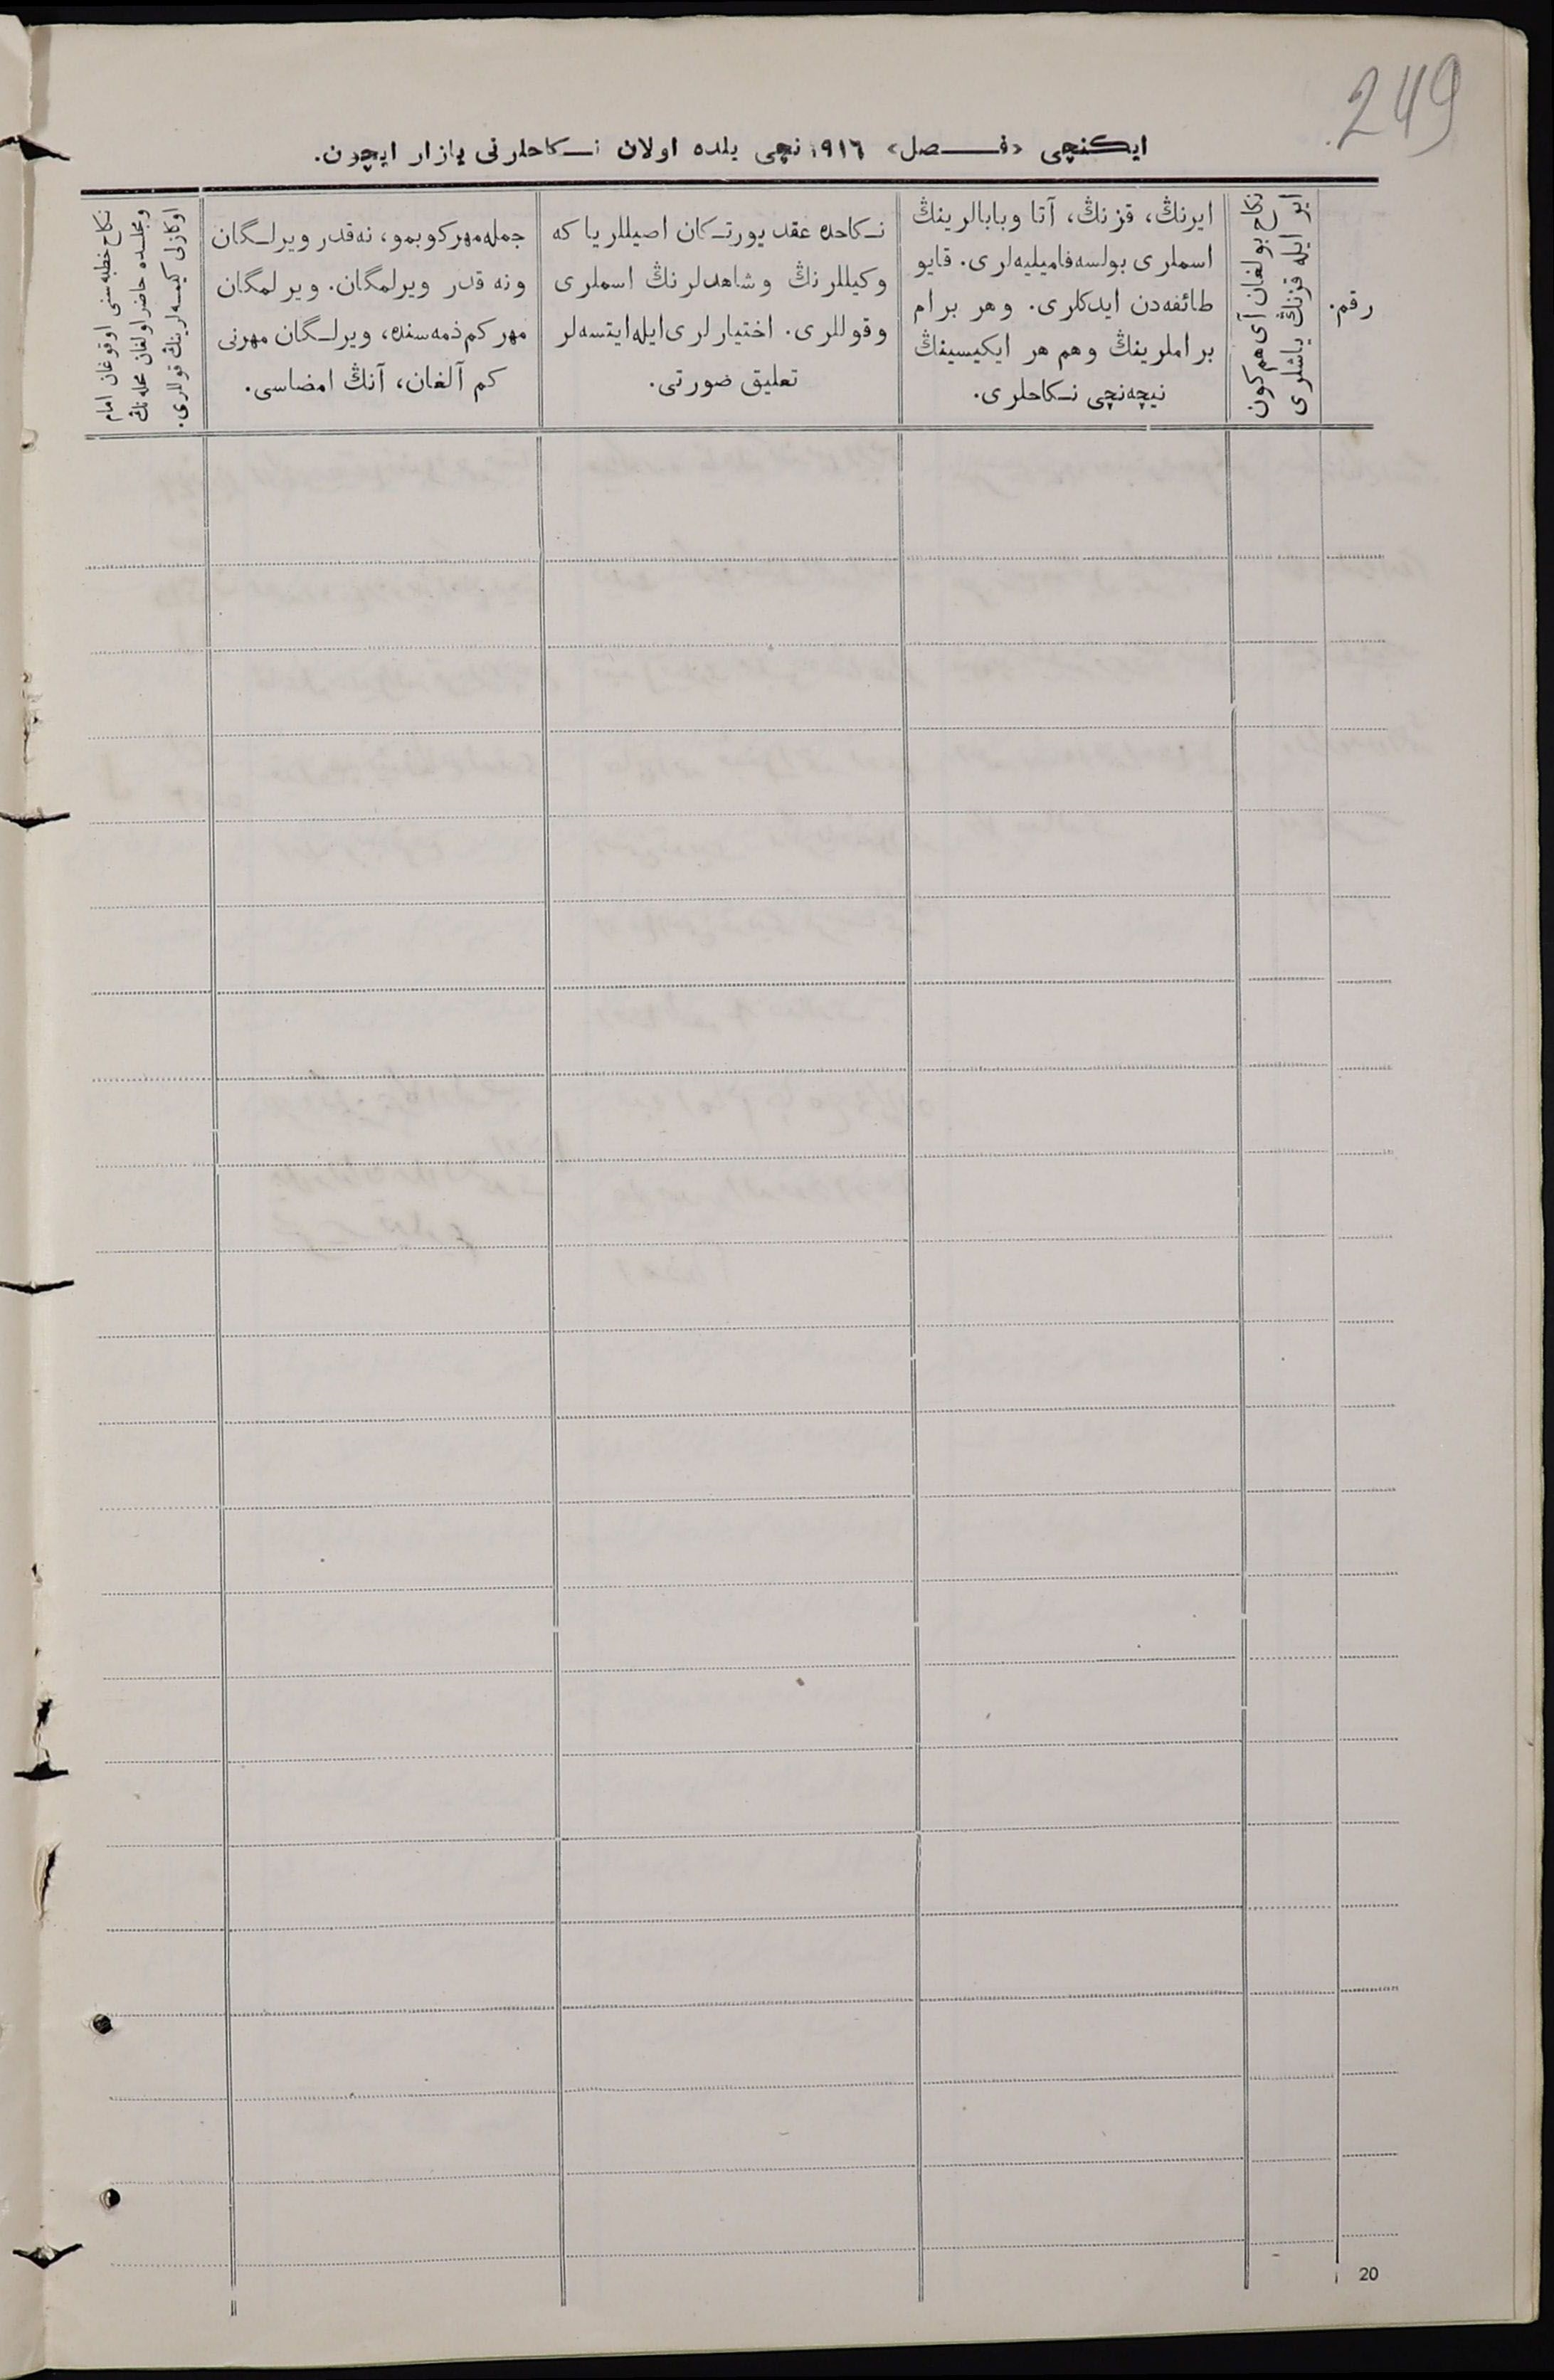 249
ایكنچی «فـــصل» ١٩١٦ نچی یلده اولان نـكاحلرنی یازار ایچون.
رقم.
ایر ایله قزنڭ یاشلری
نكاح بولغان آی هم كون
ایرنڭ، قزنڭ، آتا وبابالرینڭ
اسملری بولسه فامیلیه‌لری. قایو
طائفه‌دن ایدكلری. وهر برام
براملرینڭ وهم هر ایكیسینڭ
نیچه‌نچی نـكاحلری.
نـكاحده عقد یورتـكان اصیللر یا كه
وكیللرنڭ وشاهدلرنڭ اسملری
وقوللری. اختیارلری ایله ایتسه‌لر
تعلیق صورتی.
جمله مهر كوبمو، نه‌قدر ویرلـگان
ونه قدر ویرلمگان. ویرلمگان
مهر كم ذمه‌سنده، ویرلـگان مهرنی
كم آلغان، آنڭ امضاسی.
نكاح خطبه‌سنی اوقوغان امام
ومجلسده حاضر اولغان محله‌نڭ
اوكازلی كیمسه‌لرینڭ قوللری.
20